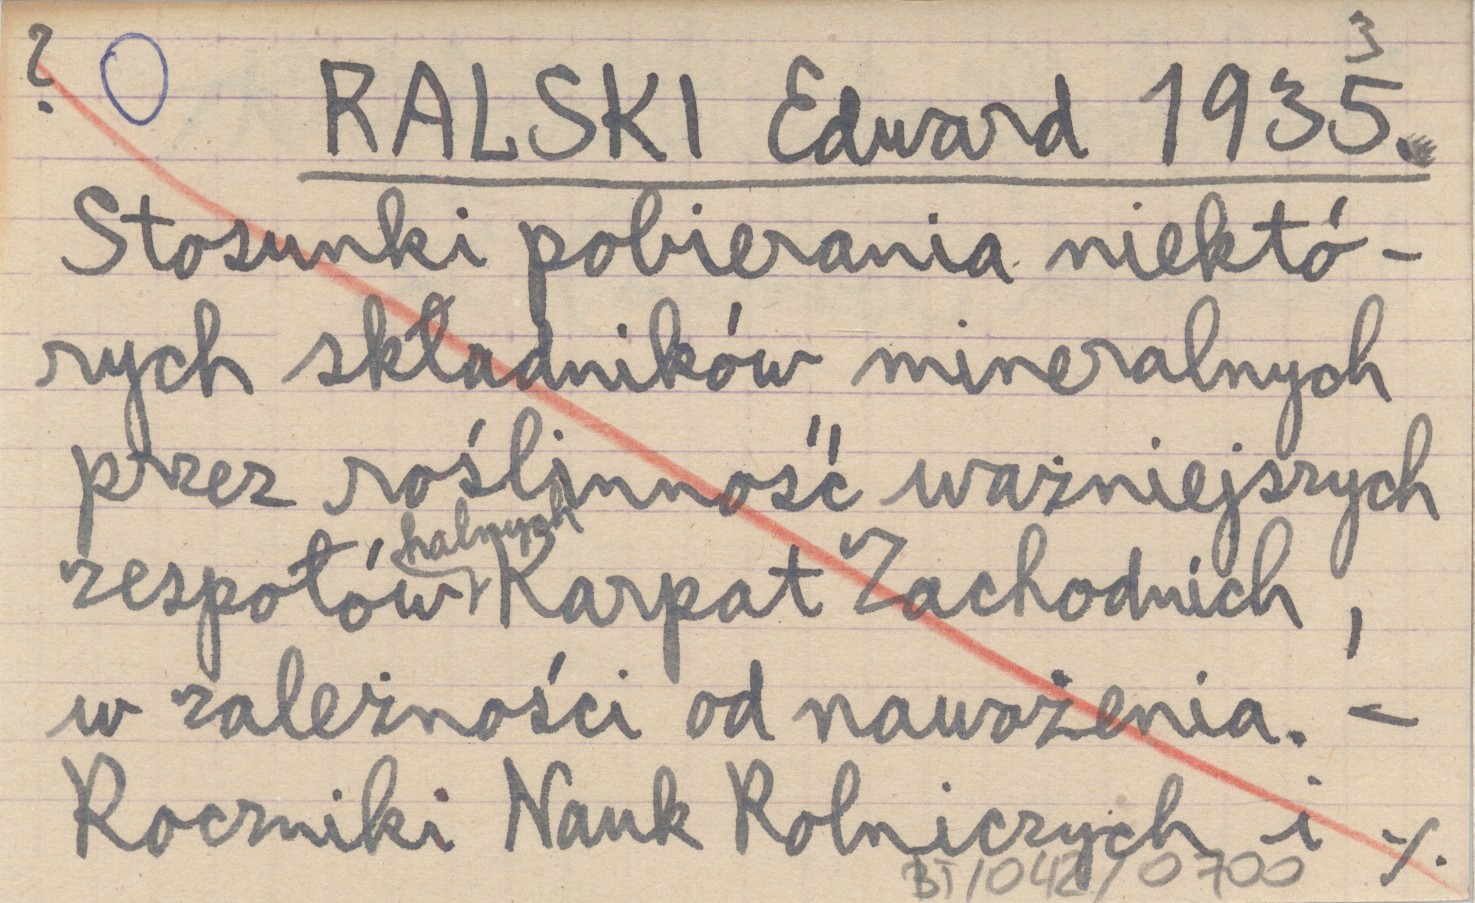 ? 0 3
RALSKI Edward 1935.
Stosunki pobierania niektó-
rych składników mineralnych
przez roślinność ważniejszych
halnych
zespołów Karpat Zachodnich,
w zależności od nawożenia. -
Roczniki Nauk Rolniczych i ./.
BT/042/0700